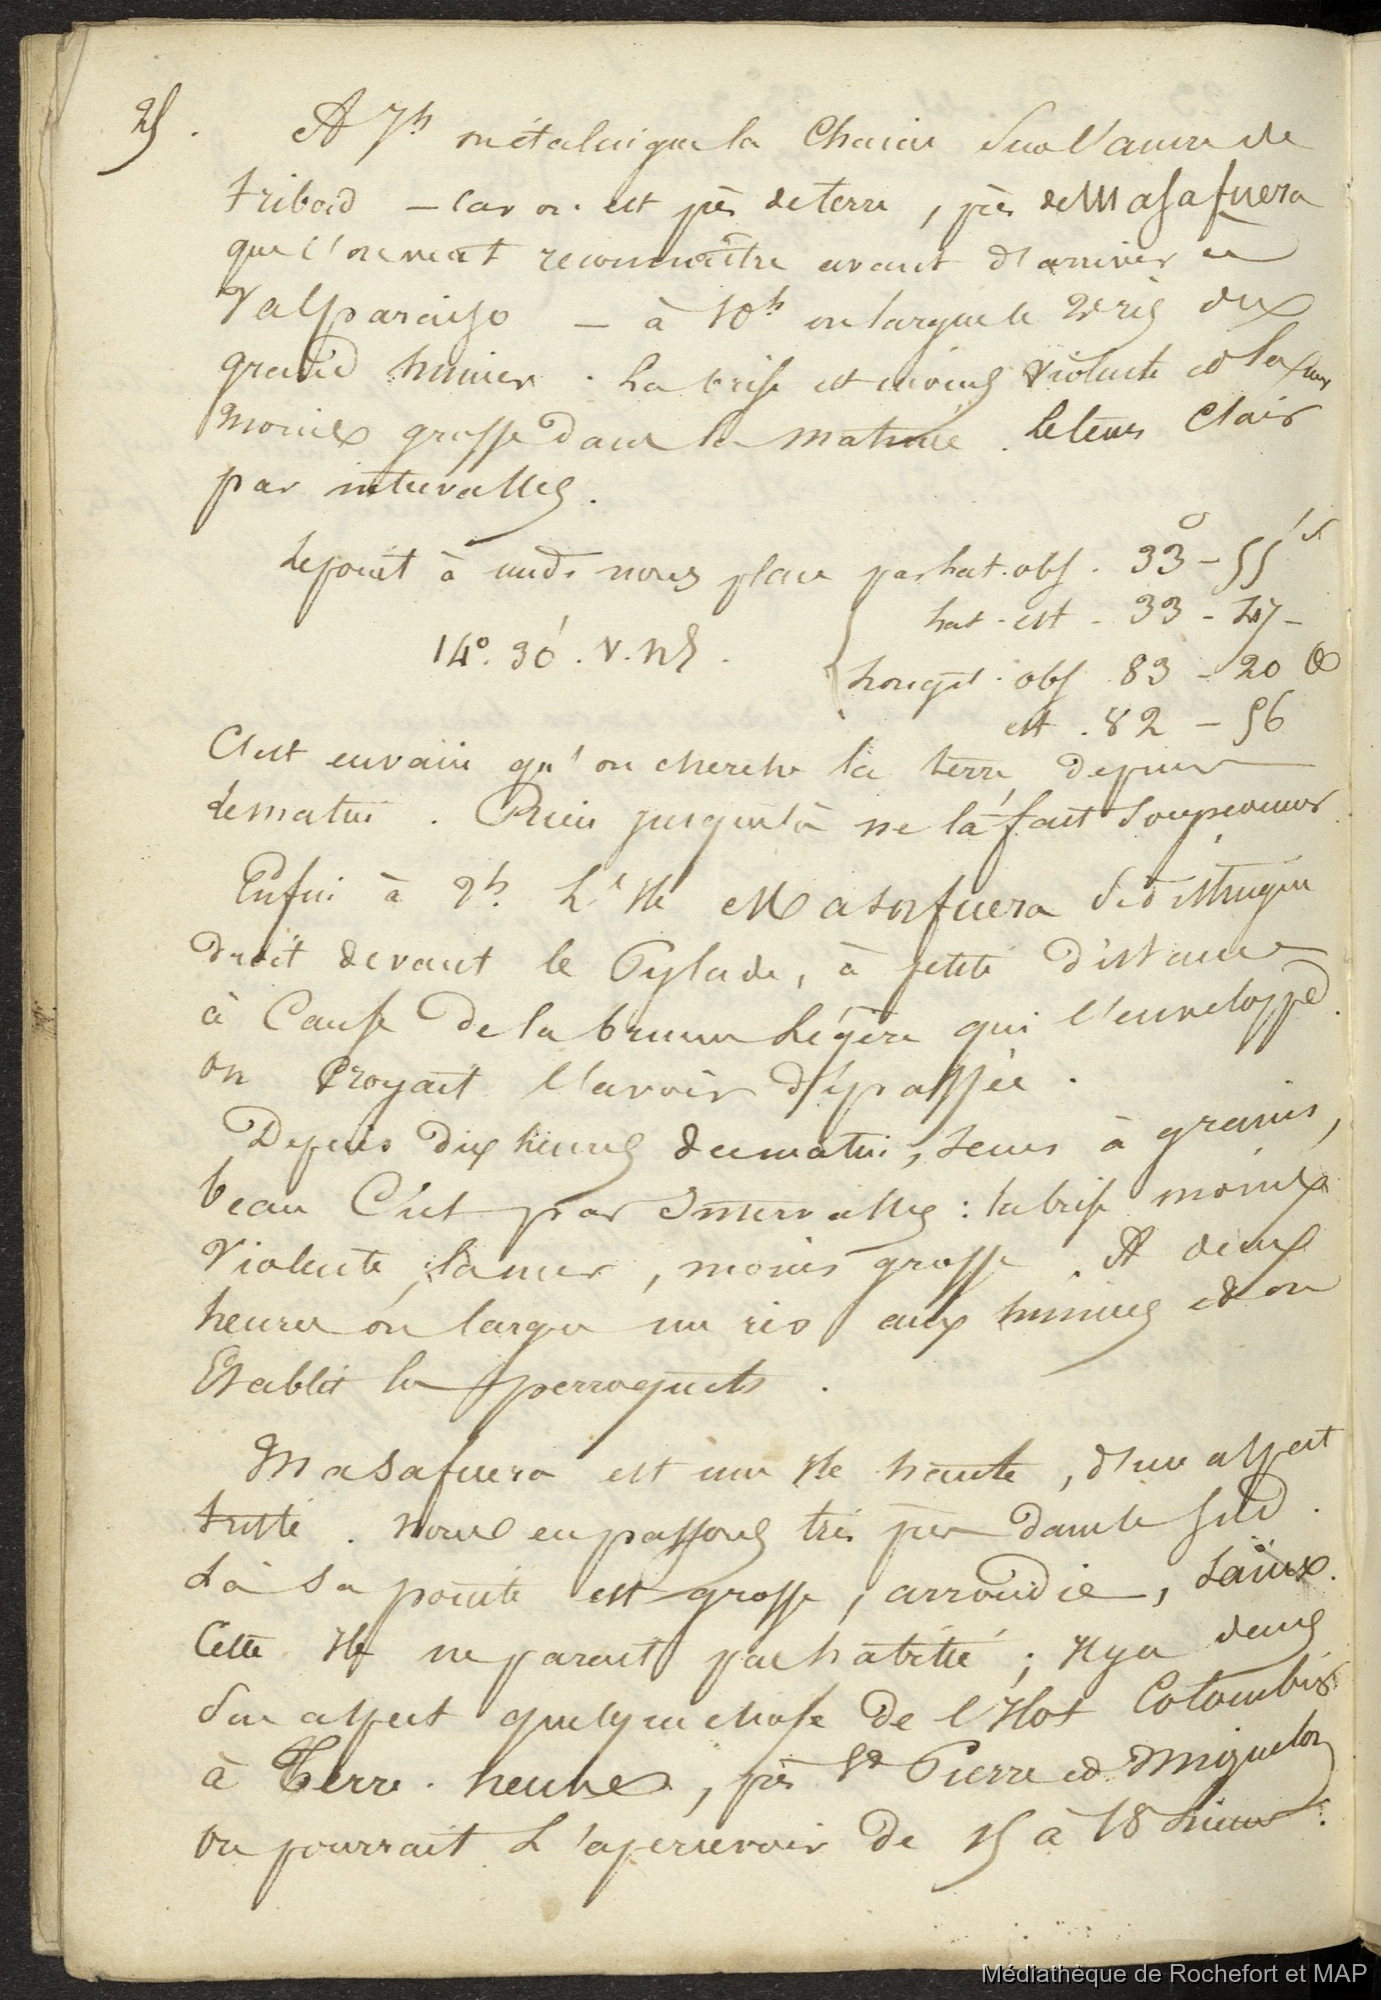 25. A 7h on étalingue la Chaine Sur l'ancre de
tribord — Car on est près de terre, près de Masafuera
que l'on veut reconnaître avant d'arriver à
Valparaiso — à 10h on largue le 2e ris du
grand hunier. La brise est moins violente et la mer
moins grosse dans la matinée. le tems Clair
par intervalles.
Le point à midi nous place par Lat. obs. 33° - 55' S
Lat. est. - 33 - 47 -
14°. 30'. V. NE.
Longit. obs 83 - 20 O
est. 82 - 56
C'est envain qu'on cherche la terre depuis
le matin. Rien jusqu'là ne la fait Soupçonner
Enfin à 2h. L'Ile Masafuera Se distingue
droit devant le Pylade, à petite distance
à Cause de la brume Légère qui l'enveloppe.
on Croyait l'avoir dépassée.
Depuis dix heures du matin, tems à grains,
beau Ciel par Intervalles : la brise moins
Violente, la mer, moins grosse. A deux
heures on largue un ris aux huniers et on
Etablit les perroquets.
Masafuera est une Ile haute, d'un aspect
triste. Nous en passons très près dans le Sud.
Là Sa pointe est grosse, arrondie, Saine.
Cette Ile ne parait pas habitée ; Il y a dans
Son aspect quelque chose de l'Ilot Colombier
à Terre. neuve, près St Pierre et Miquelon
On pourrait L'apercevoir de 15 à 18 Lieues.
Médiathèque de Rochefort et MAP